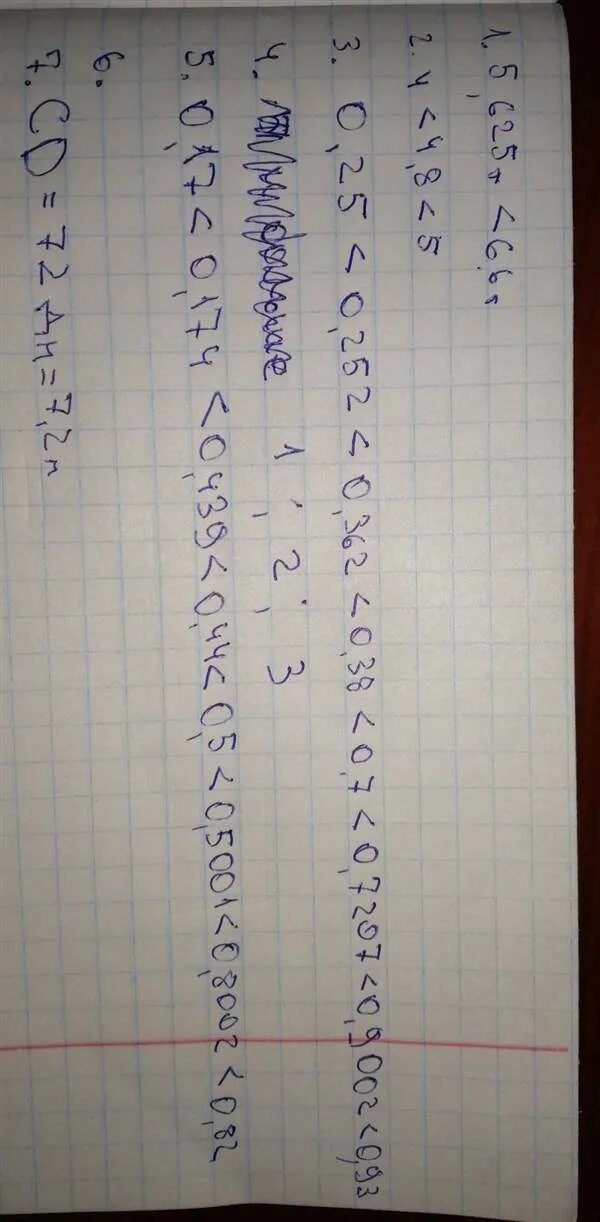 1. 5,625т < 6,6т
2. 4 < 4,8 < 5
3. 0,25 < 0,252 < 0,362 < 0,38 < 0,7 < 0,7207 < 0,9002 < 0,93
4. 1, 2, 3
5. 0,17 < 0,174 < 0,439 < 0,44 < 0,5 < 0,5001 < 0,8002 < 0,82
6.
7. CD = 72 дм = 7,2 м